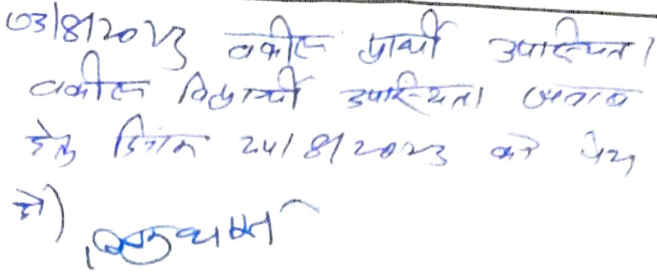 03/8/2023 वकील प्रार्थी उपस्थित।
वकील विप्रार्थी उपस्थित। जवाब
हेतु दिनांक 24/8/2023 को पेश
हो)